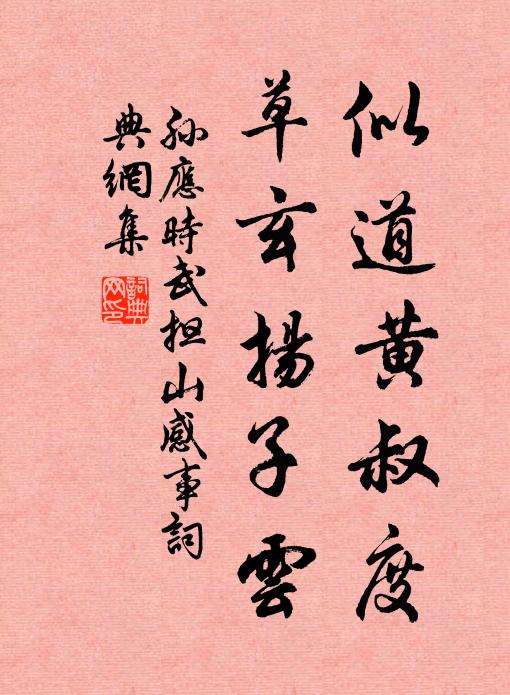 似道黄叔度
草玄揚子雲
孫應時武担山感事詞
典網集
詞典
网印